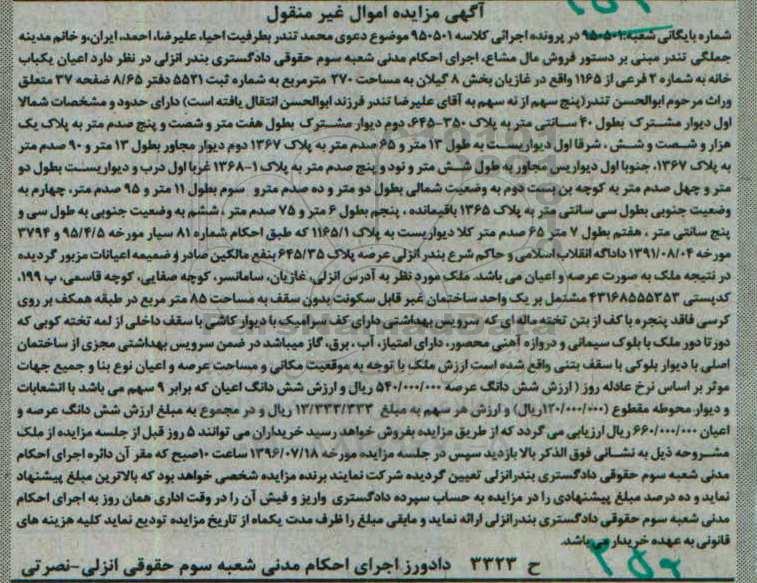 آگهی مزایده اموال غیر منقول
شماره بایگانی شعبه: ۹۵۰۵۰۱ در پرونده اجرائی کلاسه ۹۵۰۵۰۱ موضوع دعوی محمد تندر بطرفیت احیا، علیرضا، احمد، ایران، و خانم مدینه
جملگی تندر مبنی بر دستور فروش مال مشاع، اجرای احکام مدنی شعبه سوم حقوقی دادگستری بندر انزلی در نظر دارد اعیان یکباب
خانه به شماره ۲ فرعی از ۱۱۶۵ واقع در غازیان بخش ۸ گیلان به مساحت ۲۷۰ مترمربع به شماره ثبت ۵۵۲۱ دفتر ۸/۶۵ صفحه ۳۷ متعلق
وراث مرحوم ابوالحسن تندر(پنج سهم از نه سهم به آقای علیرضا تندر فرزند ابوالحسن انتقال یافته است) دارای حدود و مشخصات شمالا
اول دیوار مشترک بطول ۴۰ سانتی متر به پلاک ۳۵۰-۶۴۵، دوم دیوار مشترک بطول هفت متر و شصت و پنج صدم متر به پلاک یک
هزار و شصت و شش ، شرقا اول دیواریست به طول ۱۳ متر و ۶۵ صدم متر به پلاک ۱۳۶۷ دوم دیوار مجاور بطول ۱۳ متر و ۹۰ صدم متر
به پلاک ۱۳۶۷، جنوبا اول دیواریس مجاور به طول شش متر و نود و پنج صدم متر به پلاک ۱-۱۳۶۸ غربا اول درب و دیواریست بطول دو
متر و چهل صدم متر به کوچه بن بست دوم به وضعیت شمالی بطول دو متر و ده صدم مترو سوم بطول ۱۱ متر و ۹۵ صدم متر، چهارم به
وضعیت جنوبی بطول سی سانتی متر به پلاک ۱۳۶۵ باقیمانده ، پنجم بطول ۶ متر و ۷۵ صدم متر ، ششم به وضعیت جنوبی به طول سی و
پنج سانتی متر ، هفتم بطول ۷ متر ۶۵ صدم متر کلا دیواریست به پلاک ۱۱۶۵/۱ که طبق احکام شماره ۸۱ سیار مورخه ۹۵/۴/۵ و ۳۷۹۴
مورخه ۱۳۹۱/۰۸/۰۴ داداگاه انقلاب اسلامی و حاکم شرع بندر انزلی عرصه پلاک ۶۴۵/۳۵ بنفع مالکین صادر و ضمیمه اعیانات مزبور گردیده
در نتیجه ملک به صورت عرصه و اعیان می باشد. ملک مورد نظر به آدرس انزلی، غازیان، سامانسر، کوچه صفایی، کوچه قاسمی، پ ۱۹۹،
کدپستی ۴۳۱۶۸۵۵۵۳۵۳ مشتمل بر یک واحد ساختمان غیر قابل سکونت بدون سقف به مساحت ۸۵ متر مربع در طبقه همکف بر روی
کرسی فاقد پنجره با کف از بتن تخته ماله ای که سرویس بهداشتی دارای کف سرامیک با دیوار کاشی با سقف داخلی از لمه تخته کوبی که
دورتا دور ملک با بلوک سیمانی و دروازه آهنی محصور، دارای امتیاز، آب ، برق، گاز میباشد در ضمن سرویس بهداشتی مجزی از ساختمان
اصلی با دیوار بلوکی با سقف بتنی واقع شده است ارزش ملک با توجه به موقعیت مکانی و مساحت عرصه و اعیان نوع بنا و جمیع جهات
موثر بر اساس نرخ عادله روز ( ارزش شش دانگ عرصه ۵۴۰/۰۰۰/۰۰۰ ریال و ارزش شش دانگ اعیان که برابر ۹ سهم می باشد با انشعابات
و دیوار محوطه مقطوع (۱۲۰/۰۰۰/۰۰۰ریال) و ارزش هر سهم به مبلغ ۱۳/۳۳۳/۳۳۳ ریال و در مجموع به مبلغ ارزش شش دانگ عرصه و
اعیان ۶۶۰/۰۰۰/۰۰۰ ریال ارزیابی می گردد که از طریق مزایده بفروش خواهد رسید خریداران می توانند ۵ روز قبل از جلسه مزایده از ملک
مشروحه ذیل به نشانی فوق الذکر بالا بازدید سپس در جلسه مزایده مورخه ۱۳۹۶/۰۷/۱۸ ساعت ۱۰صبح که مقر آن دائره اجرای احکام
مدنی شعبه سوم حقوقی دادگستری بندرانزلی تعیین گردیده شرکت نمایند برنده مزایده شخصی خواهد بود که بالاترین مبلغ پیشنهاد
نماید و ده درصد مبلغ پیشنهادی را در مزایده به حساب سپرده دادگستری واریز و فیش آن را در وقت اداری همان روز به اجرای احکام
مدنی شعبه سوم حقوقی دادگستری بندرانزلی ارائه نماید و مابقی مبلغ را ظرف مدت یکماه از تاریخ مزایده تودیع نماید کلیه هزینه های
قانونی به عهده خریدار می باشد.
ح ۳۳۲۳ دادورز اجرای احکام مدنی شعبه سوم حقوقی انزلی-نصرتی